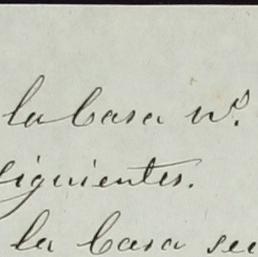 la Casa nº.
siguientes.
la Casa